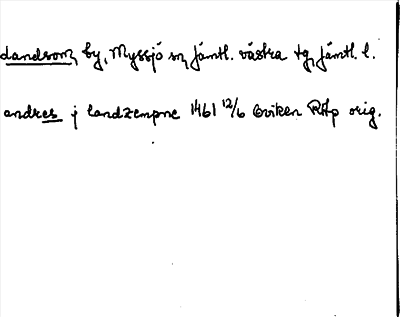 Landsom, by, Myssjö sn, Jämtl. västra tg, Jämtl. l.
andres j landzempne 1461 12/6 Oviken RAp orig.